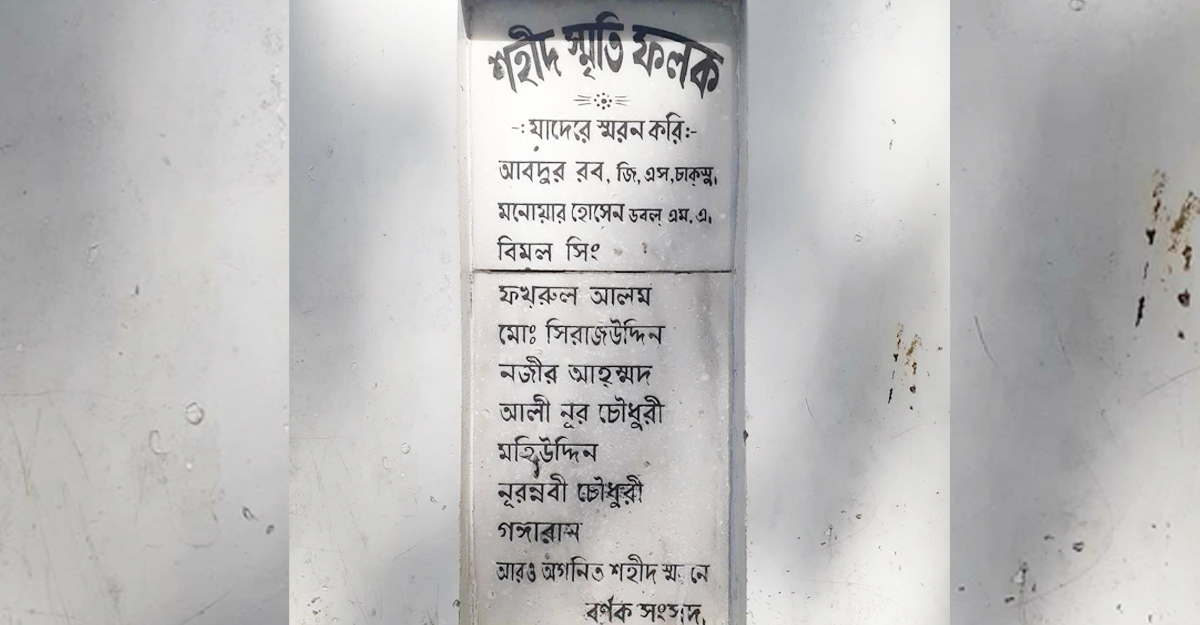 শহীদ স্মৃতি ফলক
-: যাদেরে স্মরন করি:-
আবদুর রব, জি, এস, চাক্সু,
মনোয়ার হোসেন ডবল্ এম, এ,
বিমল সিং
ফখরুল আলম
মোঃ সিরাজউদ্দিন
নজীর আহম্মদ
আলী নূর চৌধুরী
মহিউদ্দিন
নূরন্নবী চৌধুরী
গঙ্গারাম
আরও অগনিত শহীদ
বর্ণক সংসদ,